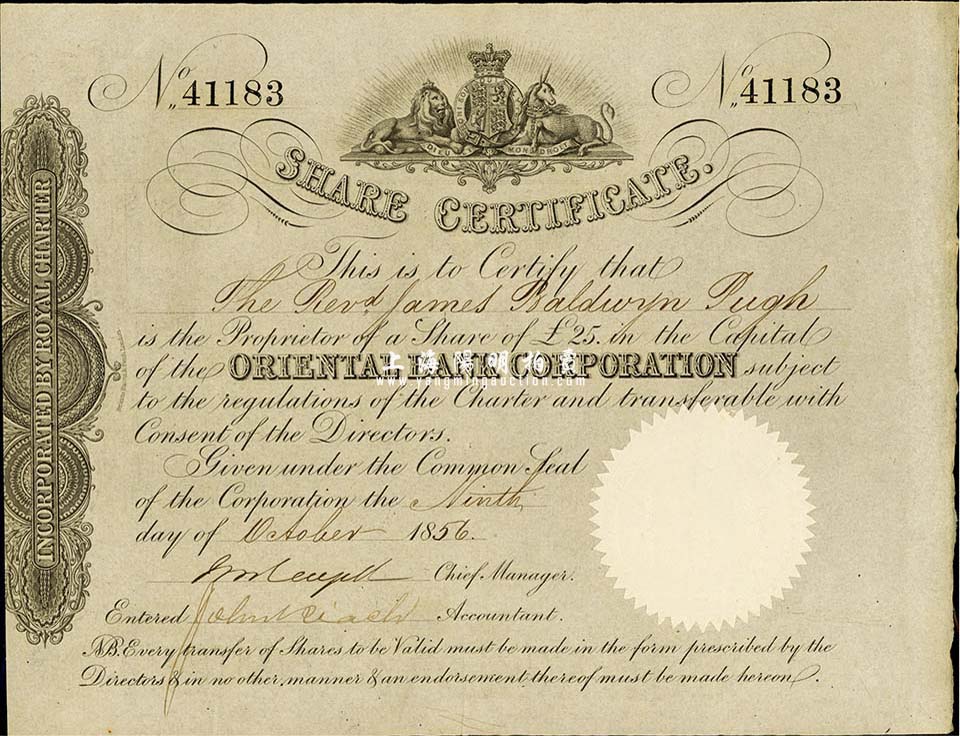 No. 41183
No. 41183
DIEU ET MON DROIT
SHARE CERTIFICATE.
INCORPORATED BY ROYAL CHARTER
This is to Certify that
The Revd. James Baldwyn Pugh
is the Proprietor of a Share of £25. in the Capital
of the ORIENTAL BANK CORPORATION subject
上海陽明拍賣
www.yangmingauction.com
to the regulations of the Charter and transferable with
Consent of the Directors.
Given under the Common Seal
of the Corporation the Ninth
day of October 1856.
Chief Manager.
Entered John Accountant.
N.B. Every transfer of Shares to be Valid must be made in the form prescribed by the
Directors & in no other manner & an endorsement thereof must be made hereon.